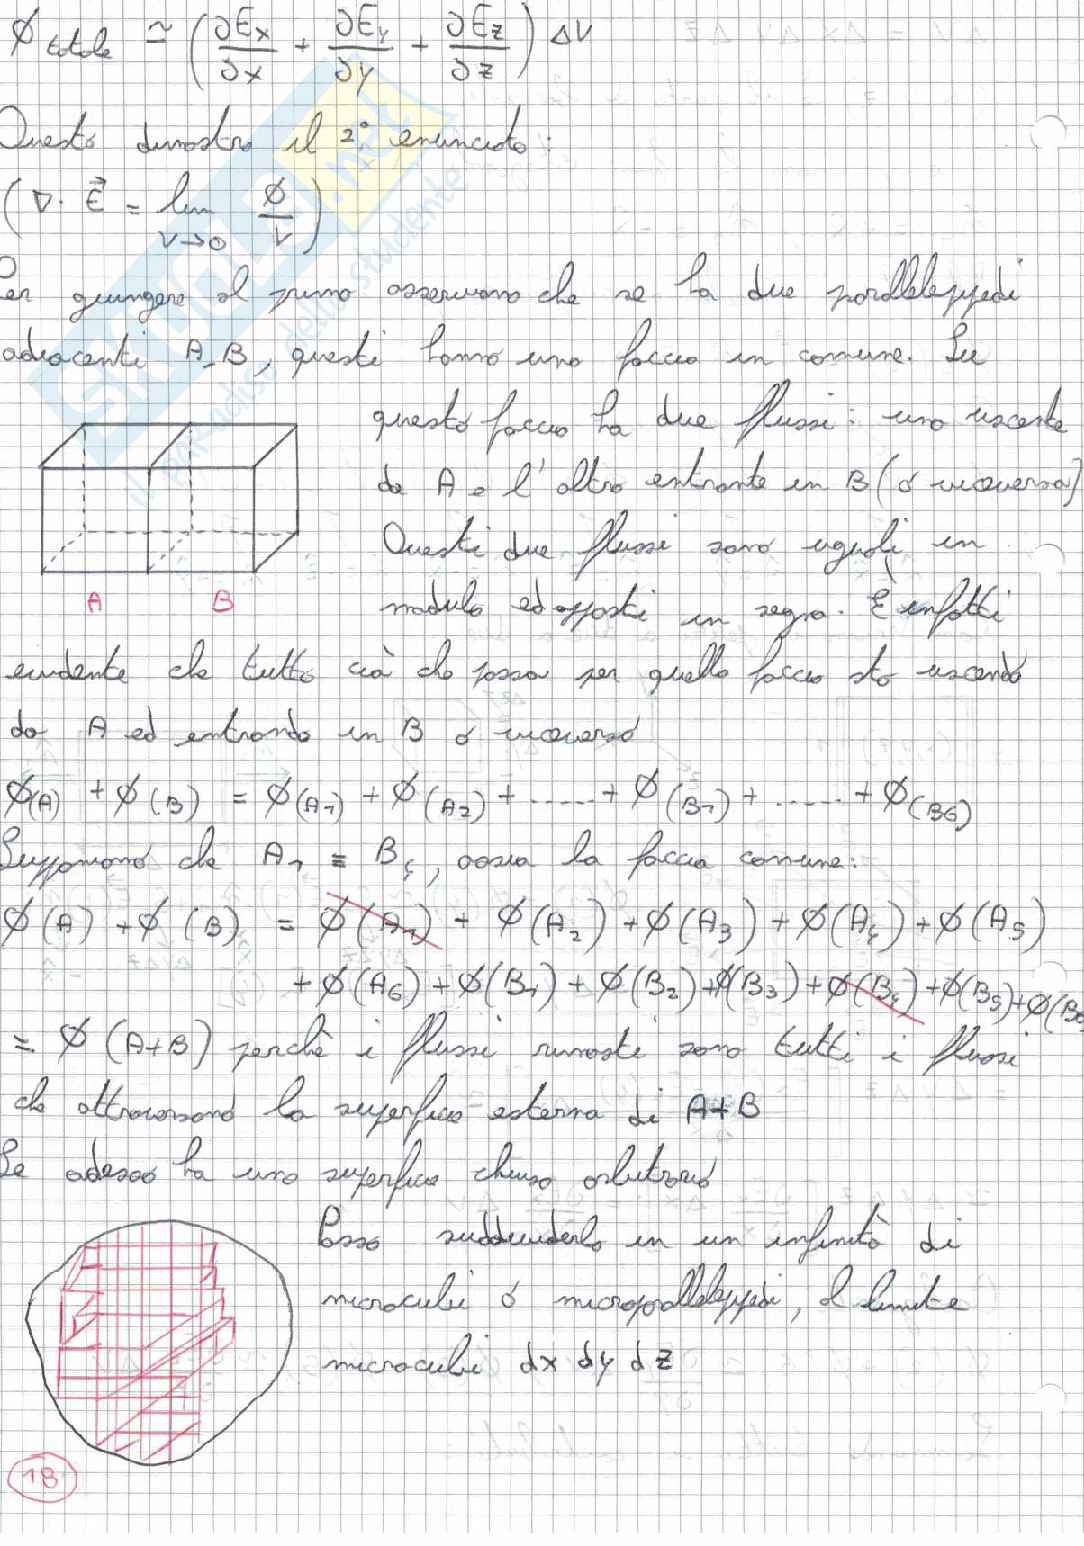 ϕ totale ≃ (∂Ex/∂x + ∂Ey/∂y + ∂Ez/∂z) ΔV
Questo dimostra il 2° enunciato:
(∇· E⃗ = lim V→0 ϕ/V)
Per giungere al primo osserviamo che se ho due parallelepipedi
adiacenti A, B, questi hanno una faccia in comune. Su
questa faccia ho due flussi: uno uscente
da A e l'altro entrante in B (o viceversa)
Questi due flussi sono uguali in
modulo ed opposti in segno. È infatti
evidente che tutto ciò che passa per quella faccia sta uscendo
da A ed entrando in B o viceversa
A B
ϕ(A) + ϕ(B) = ϕ(A1) + ϕ(A2) + ...... + ϕ(B1) + ...... + ϕ(B6)
Supponiamo che A1 ≡ B4, ossia la faccia comune:
ϕ(A) + ϕ(B) = ϕ(A1) + ϕ(A2) + ϕ(A3) + ϕ(A4) + ϕ(A5)
+ ϕ(A6) + ϕ(B1) + ϕ(B2) + ϕ(B3) + ϕ(B4) + ϕ(B5) + ϕ(B6
= ϕ(A+B) perchè i flussi rimasti sono tutti i flussi
che attraversano la superficie esterna di A+B
Se adesso ho una superficie chiusa arbitraria
Posso suddividerla in un infinità di
microcubi o microparallelepipedi, al limite
microcubi dx dy dz
18
SKUOLA.net
il paradiso dello studente